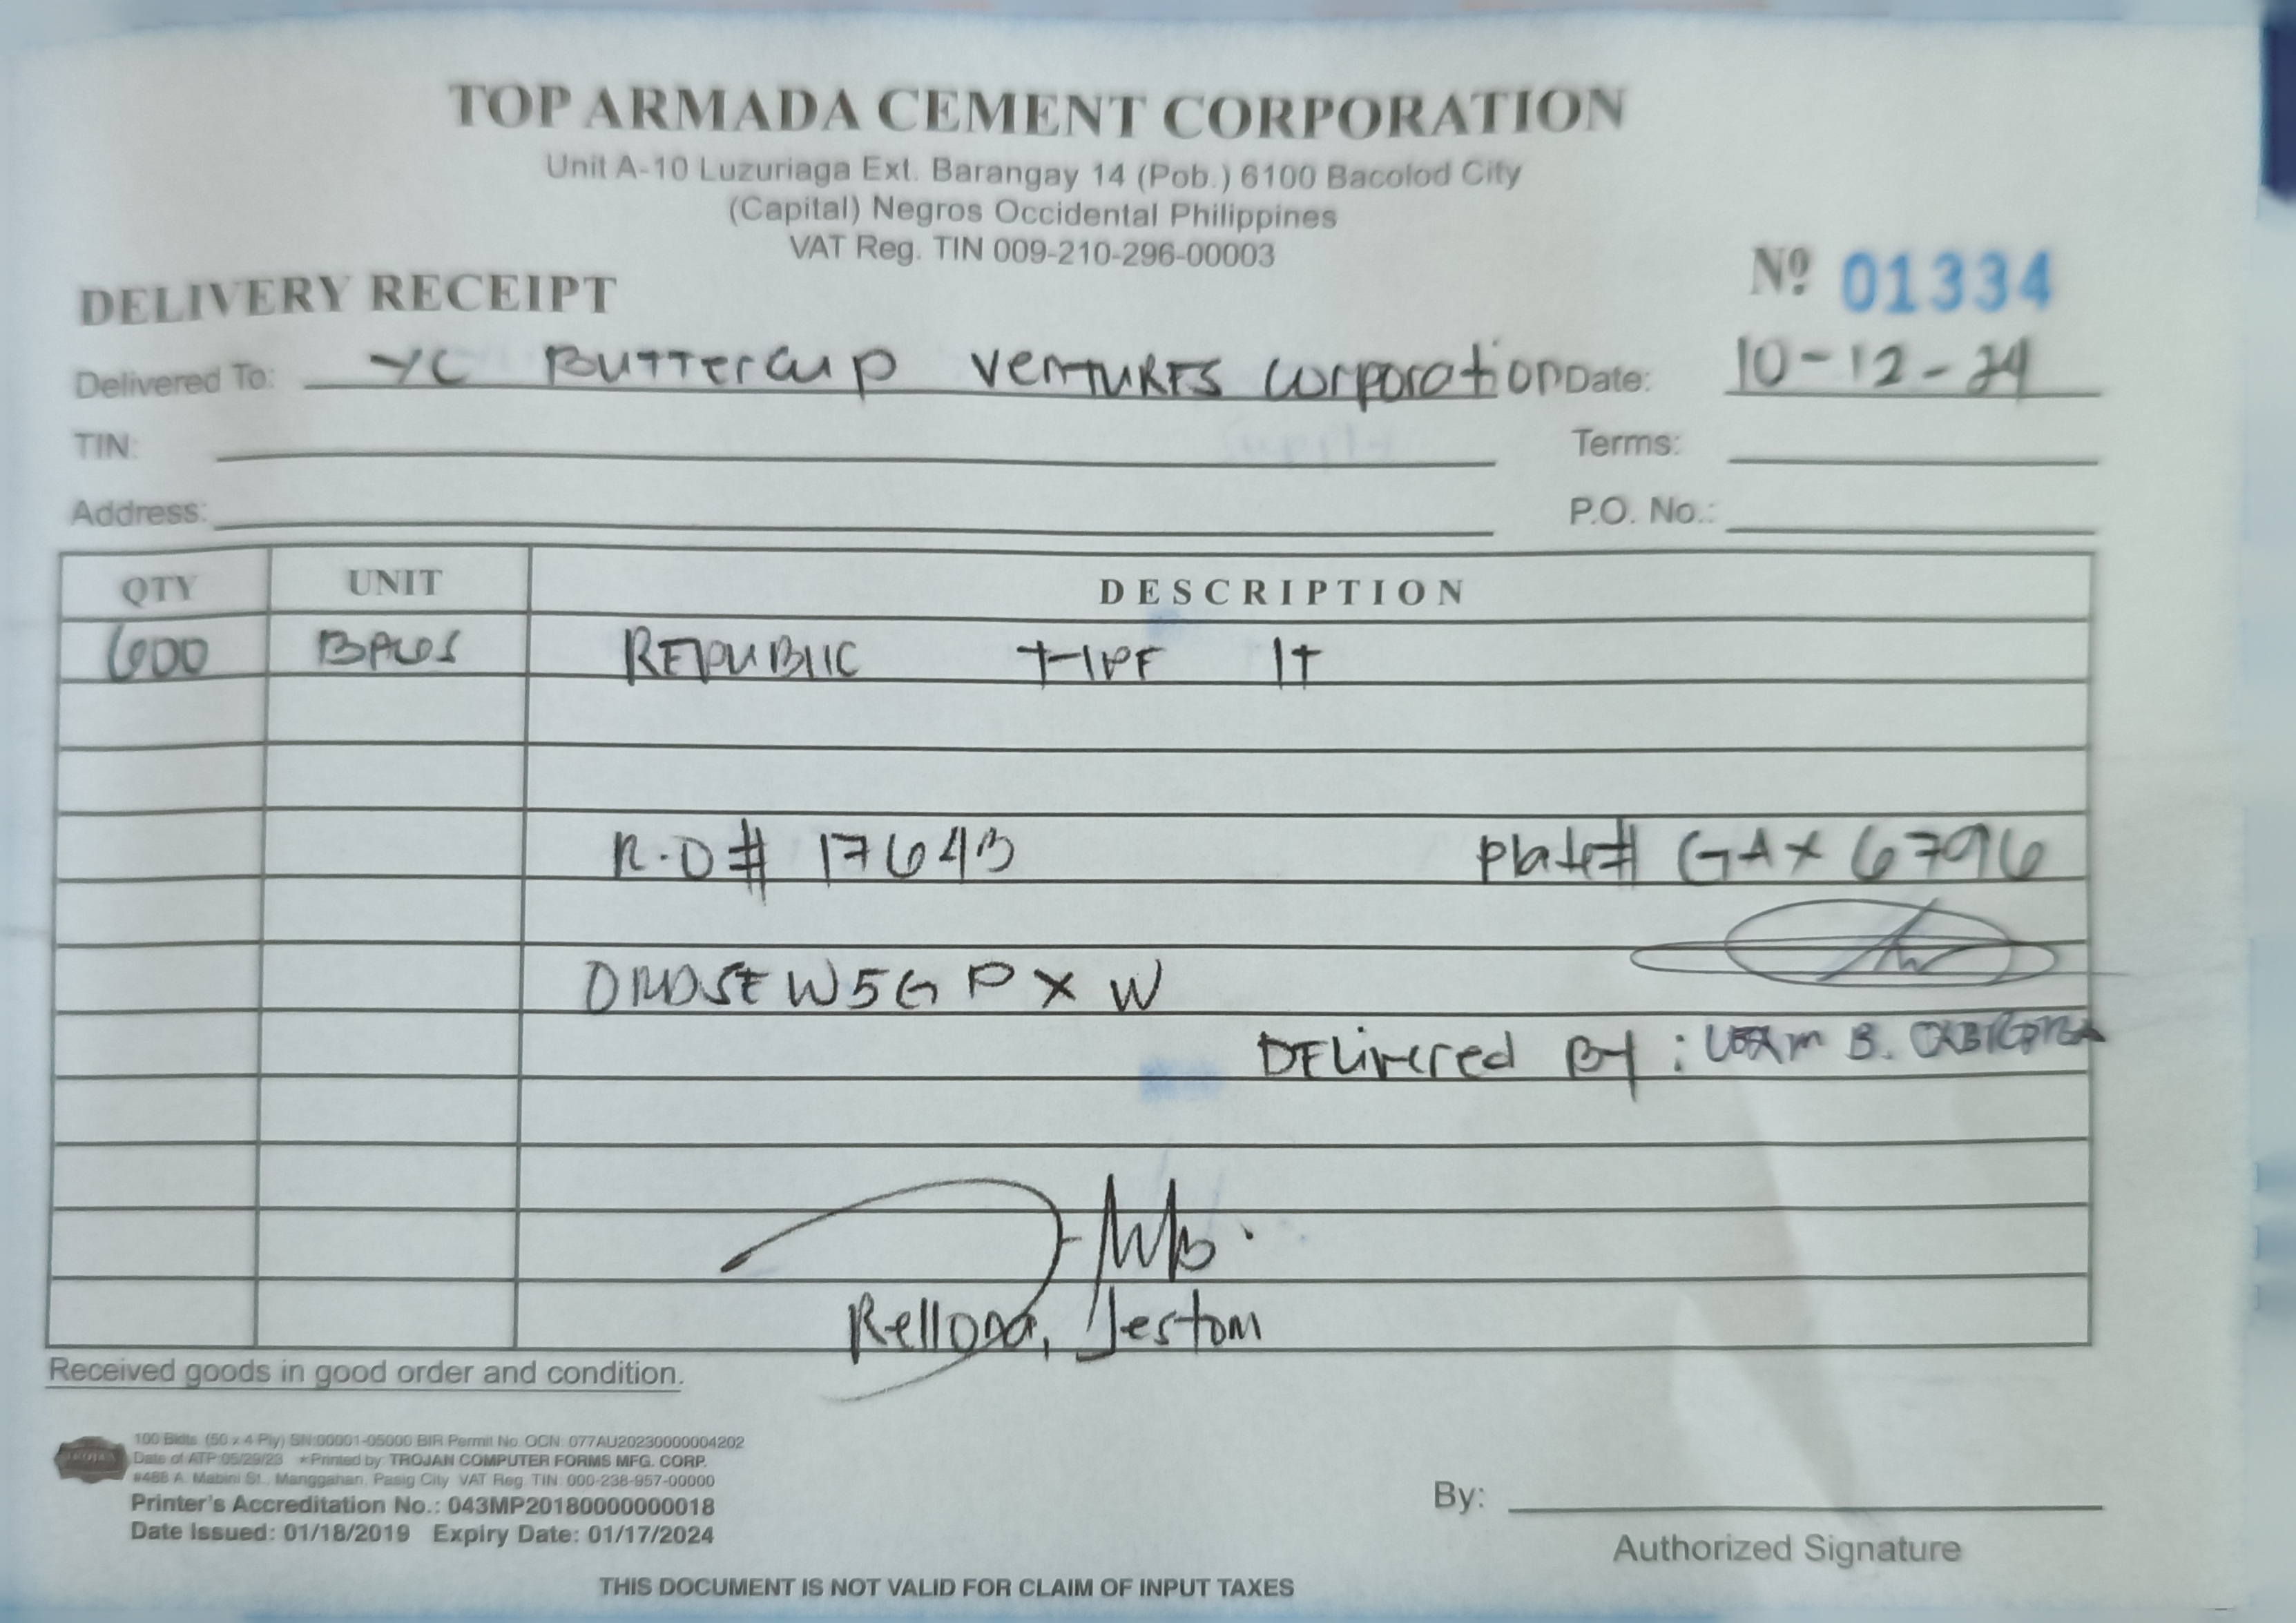 TOP ARMADA CEMENT CORPORATION
Unit A-10 Luzuriaga Ext. Barangay 14 (Pob.) 6100 Bacolod City
(Capital) Negros Occidental Philippines
VAT Reg. TIN 009-210-296-00003
DELIVERY RECEIPT Nº 01334
Delivered To: YC Buttercup Ventures Corporation Date: 10-12-24
TIN: Terms:
Address: P.O. No.:
QTY UNIT DESCRIPTION
600 BAGS REPUBLIC TYPE 1T
R.O# 17643 Plate# GAX 6796
W5GPXW
DELivered By: B.
Rellona, Jestom
Received goods in good order and condition.
100 Bklts. (50 x 4 Ply) SN:00001-05000 BIR Permit No. OCN: 077AU20230000004202
Date of ATP:05/29/23 *Printed by: TROJAN COMPUTER FORMS MFG. CORP.
#488 A. Mabini St., Manggahan, Pasig City VAT Reg. TIN: 000-238-957-00000
Printer's Accreditation No.: 043MP20180000000018
Date Issued: 01/18/2019 Expiry Date: 01/17/2024
By:
Authorized Signature
THIS DOCUMENT IS NOT VALID FOR CLAIM OF INPUT TAXES